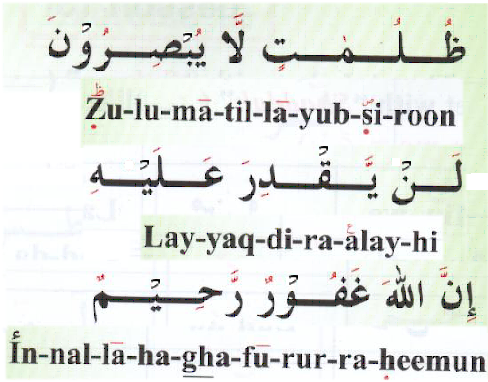 ظُلُمٰتٍ لَّا يُبْصِرُوْنَ
Ẓu-lu-mā-til-lā-yub-ṣi-roon
لَنْ يَّقْدِرَ عَلَيْهِ
Lay-yaq-di-ra-àlay-hi
اِنَّ اللّٰهَ غَفُوْرٌ رَّحِيْمٌ
Ín-nal-lā-ha-gha-fū-rur-ra-ḥeemun